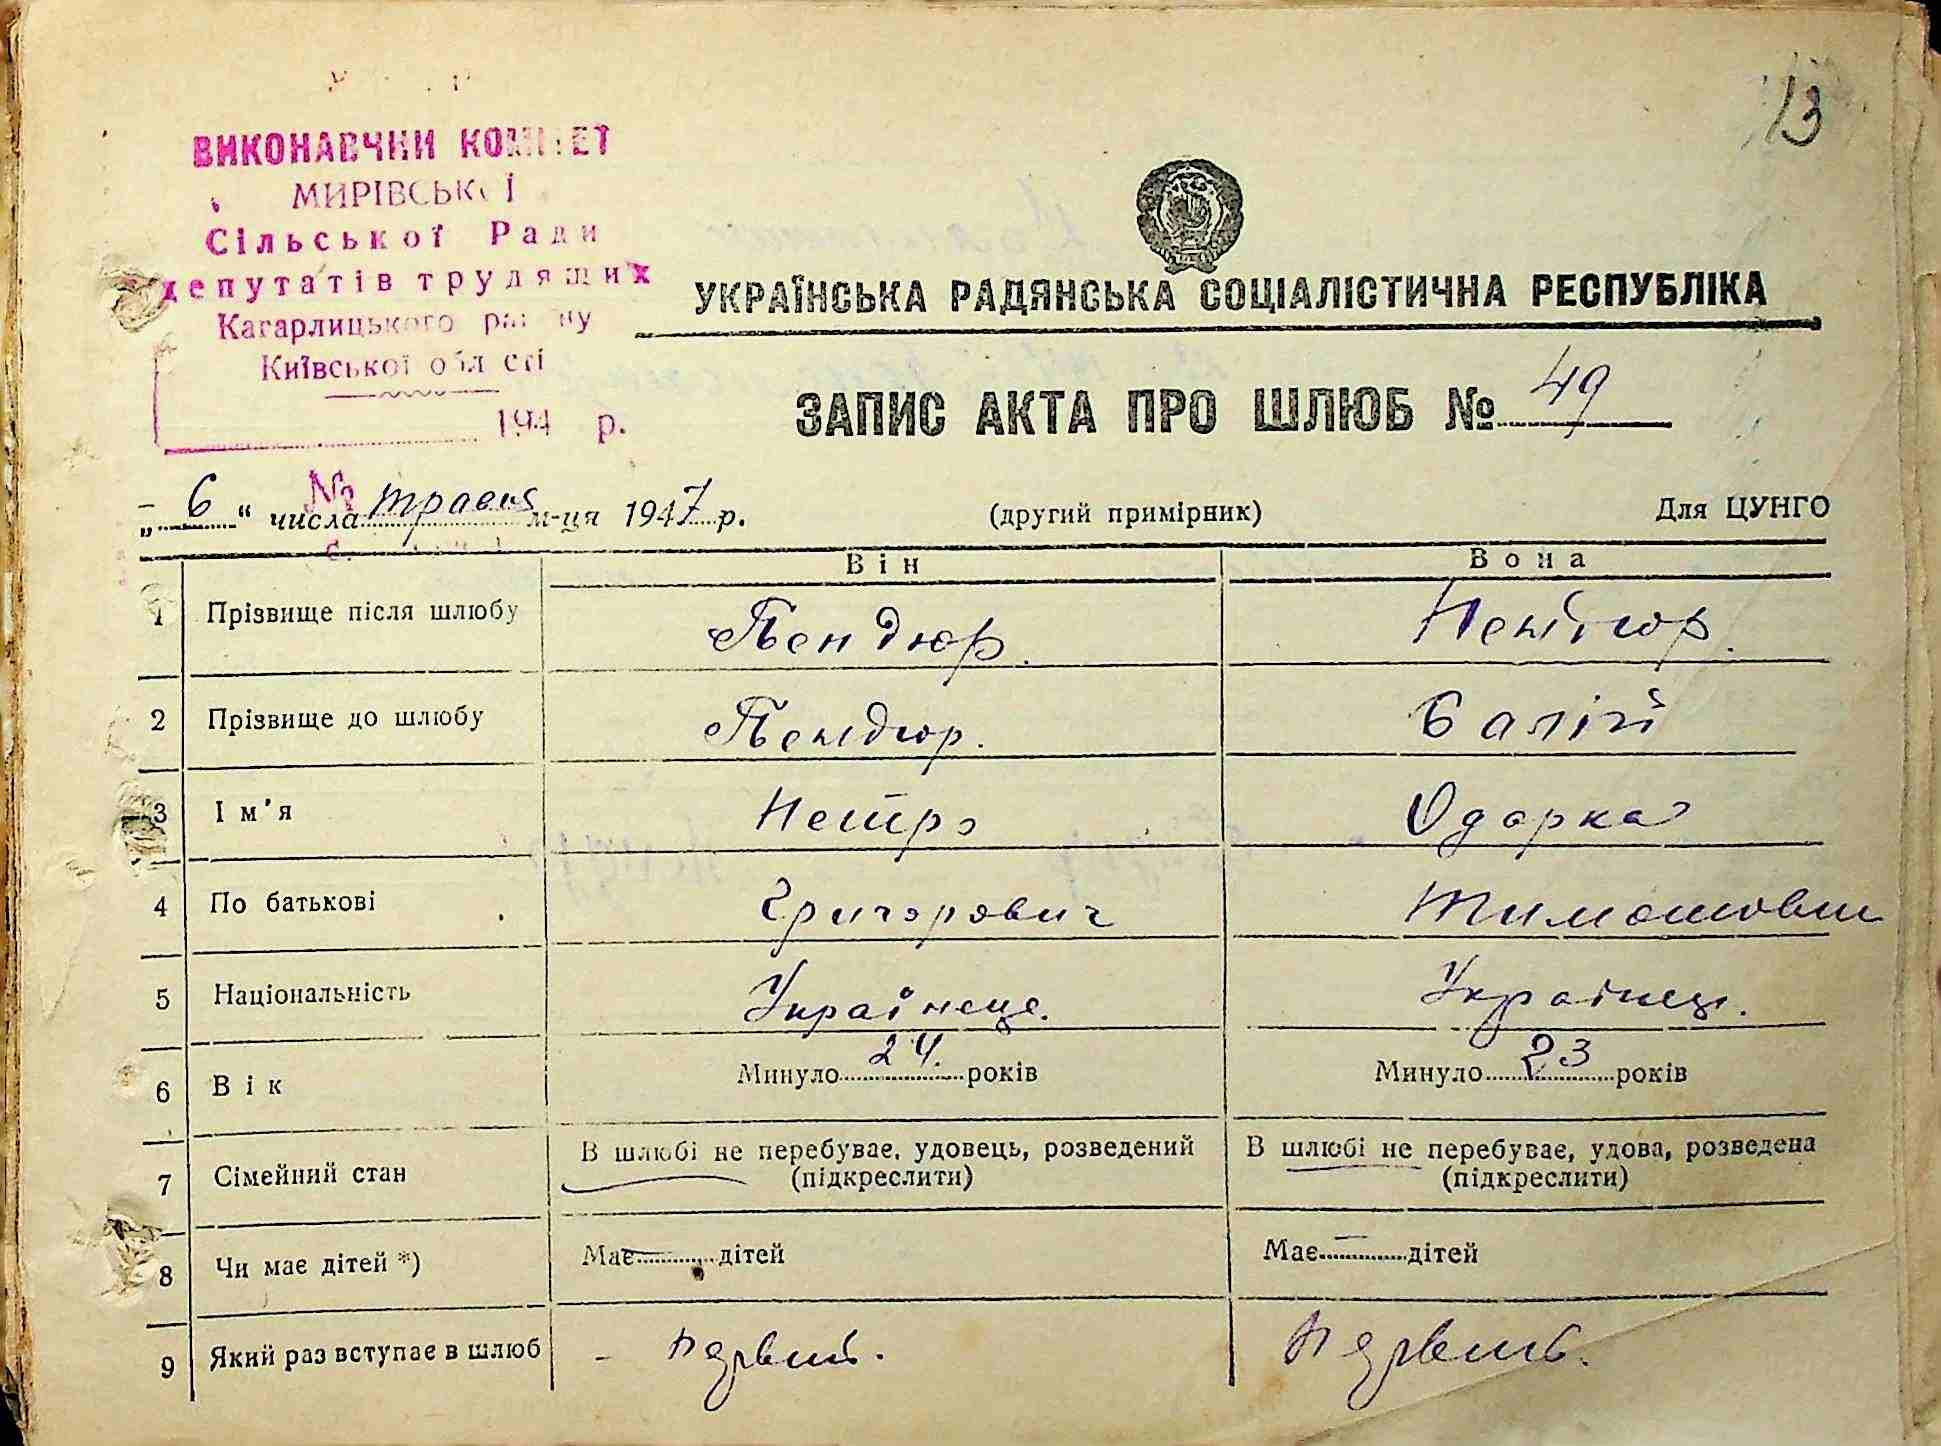 13
ВИКОНАВЧИЙ КОМІТЕТ
МИРІВСЬКОЇ
Сільської Ради
депутатів трудящих
Кагарлицького району
Київської області
194 р.
№
УКРАЇНСЬКА РАДЯНСЬКА СОЦІАЛІСТИЧНА РЕСПУБЛІКА
ЗАПИС АКТА ПРО ШЛЮБ № 49
„6“ числа травня м-ця 1947 р. (другий примірник) Для ЦУНГО
Він Вона
1 Прізвище після шлюбу Пендюр. Пендюр.
2 Прізвище до шлюбу Пендюр. Балій
3 Ім'я Петро Одарка
4 По батькові Григорович Тимошовн
5 Національність Українець. Українец.
6 Вік Минуло 24. років Минуло 23 років
7 Сімейний стан В шлюбі не перебуває, удовець, розведений (підкреслити) В шлюбі не перебуває, удова, розведена (підкреслити)
8 Чи має дітей *) Має — дітей Має — дітей
9 Який раз вступає в шлюб – Первий. Первий.